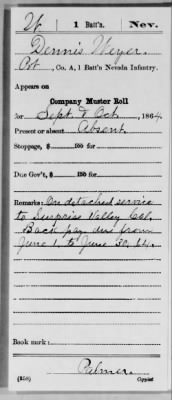 W | 1 Batt'n. | Nev.
Dennis Weyer.
Pvt, Co. A, 1 Batt'n Nevada Infantry.
Appears on
Company Muster Roll
for Sept & Oct, 1864.
Present or absent Absent
Stoppage, $ 100 for
Due Gov't, $ 100 for
Remarks: On detached service
to Surprise Valley Cal.
Back pay due from
June 1, to June 30, 64.
Book mark:
Palmer.
(356) Copyist